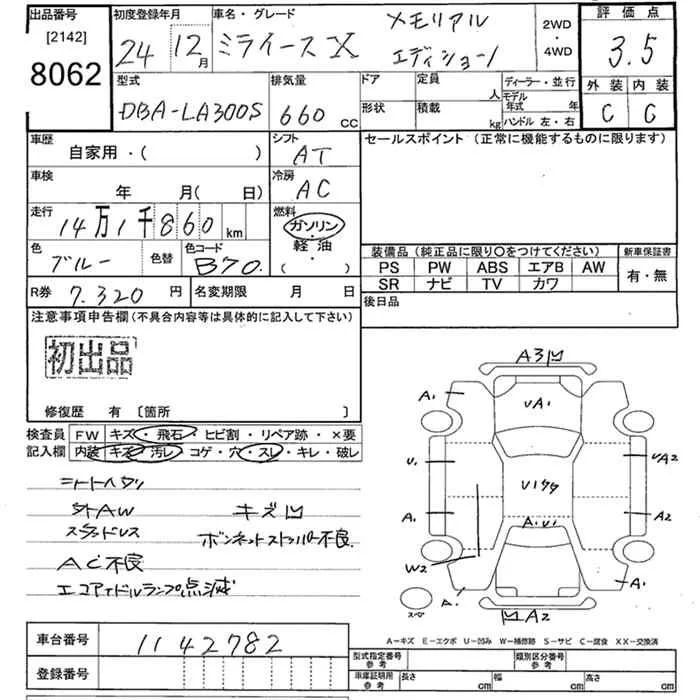 出品番号 初度登録年月 車名・グレード 2WD ・ 4WD 評価点
[2142]
8062
24 12月 ミライース X メモリアル エディション 3.5
型式 排気量 ドア 定員 人 ディーラー・並行 外装 内装
DBA-LA300S 660 CC 形状 積載 kg モデル年式 年 ハンドル 左・右 C C
車歴 シフト セールスポイント (正常に機能するものに限ります)
自家用・( ) AT
車検 年 月(日) 冷房 AC
走行 14万1千860km 燃料 ガソリン ・ 軽油 ・ ( )
色 ブルー 色替 色コード B70.
装備品 (純正品に限り〇をつけてください) 新車保証書
PS PW ABS エアB AW 有・無
SR ナビ TV カワ
R券 7.320円 名変期限 月 日 後日品
注意事項申告欄(不具合内容等は具体的に記入して下さい)
初出品
修復歴 有 〔箇所 〕
検査員記入欄 FW キズ・飛石・ヒビ割・リペア跡・×要
内装 キズ・汚レ・コゲ・穴・スレ・キレ・破レ
シートヘタリ
StAW キズ凹
スタッドレス ボンネットストッパー不良.
AC不良
エコアイドルランプ点滅
A3凹
A1 UA1
U1 U1 UA2
A1 A1 U1 A2
W2
A1 A1
スペア 凹A2
A-キズ E-エクボ U-凹み W-補修跡 S-サビ C-腐食 XX-交換済
車台番号 1142782
登録番号
型式指定番号 参考 類別区分番号 参考
車庫証明用 参考 長さ cm 幅 cm 高さ cm